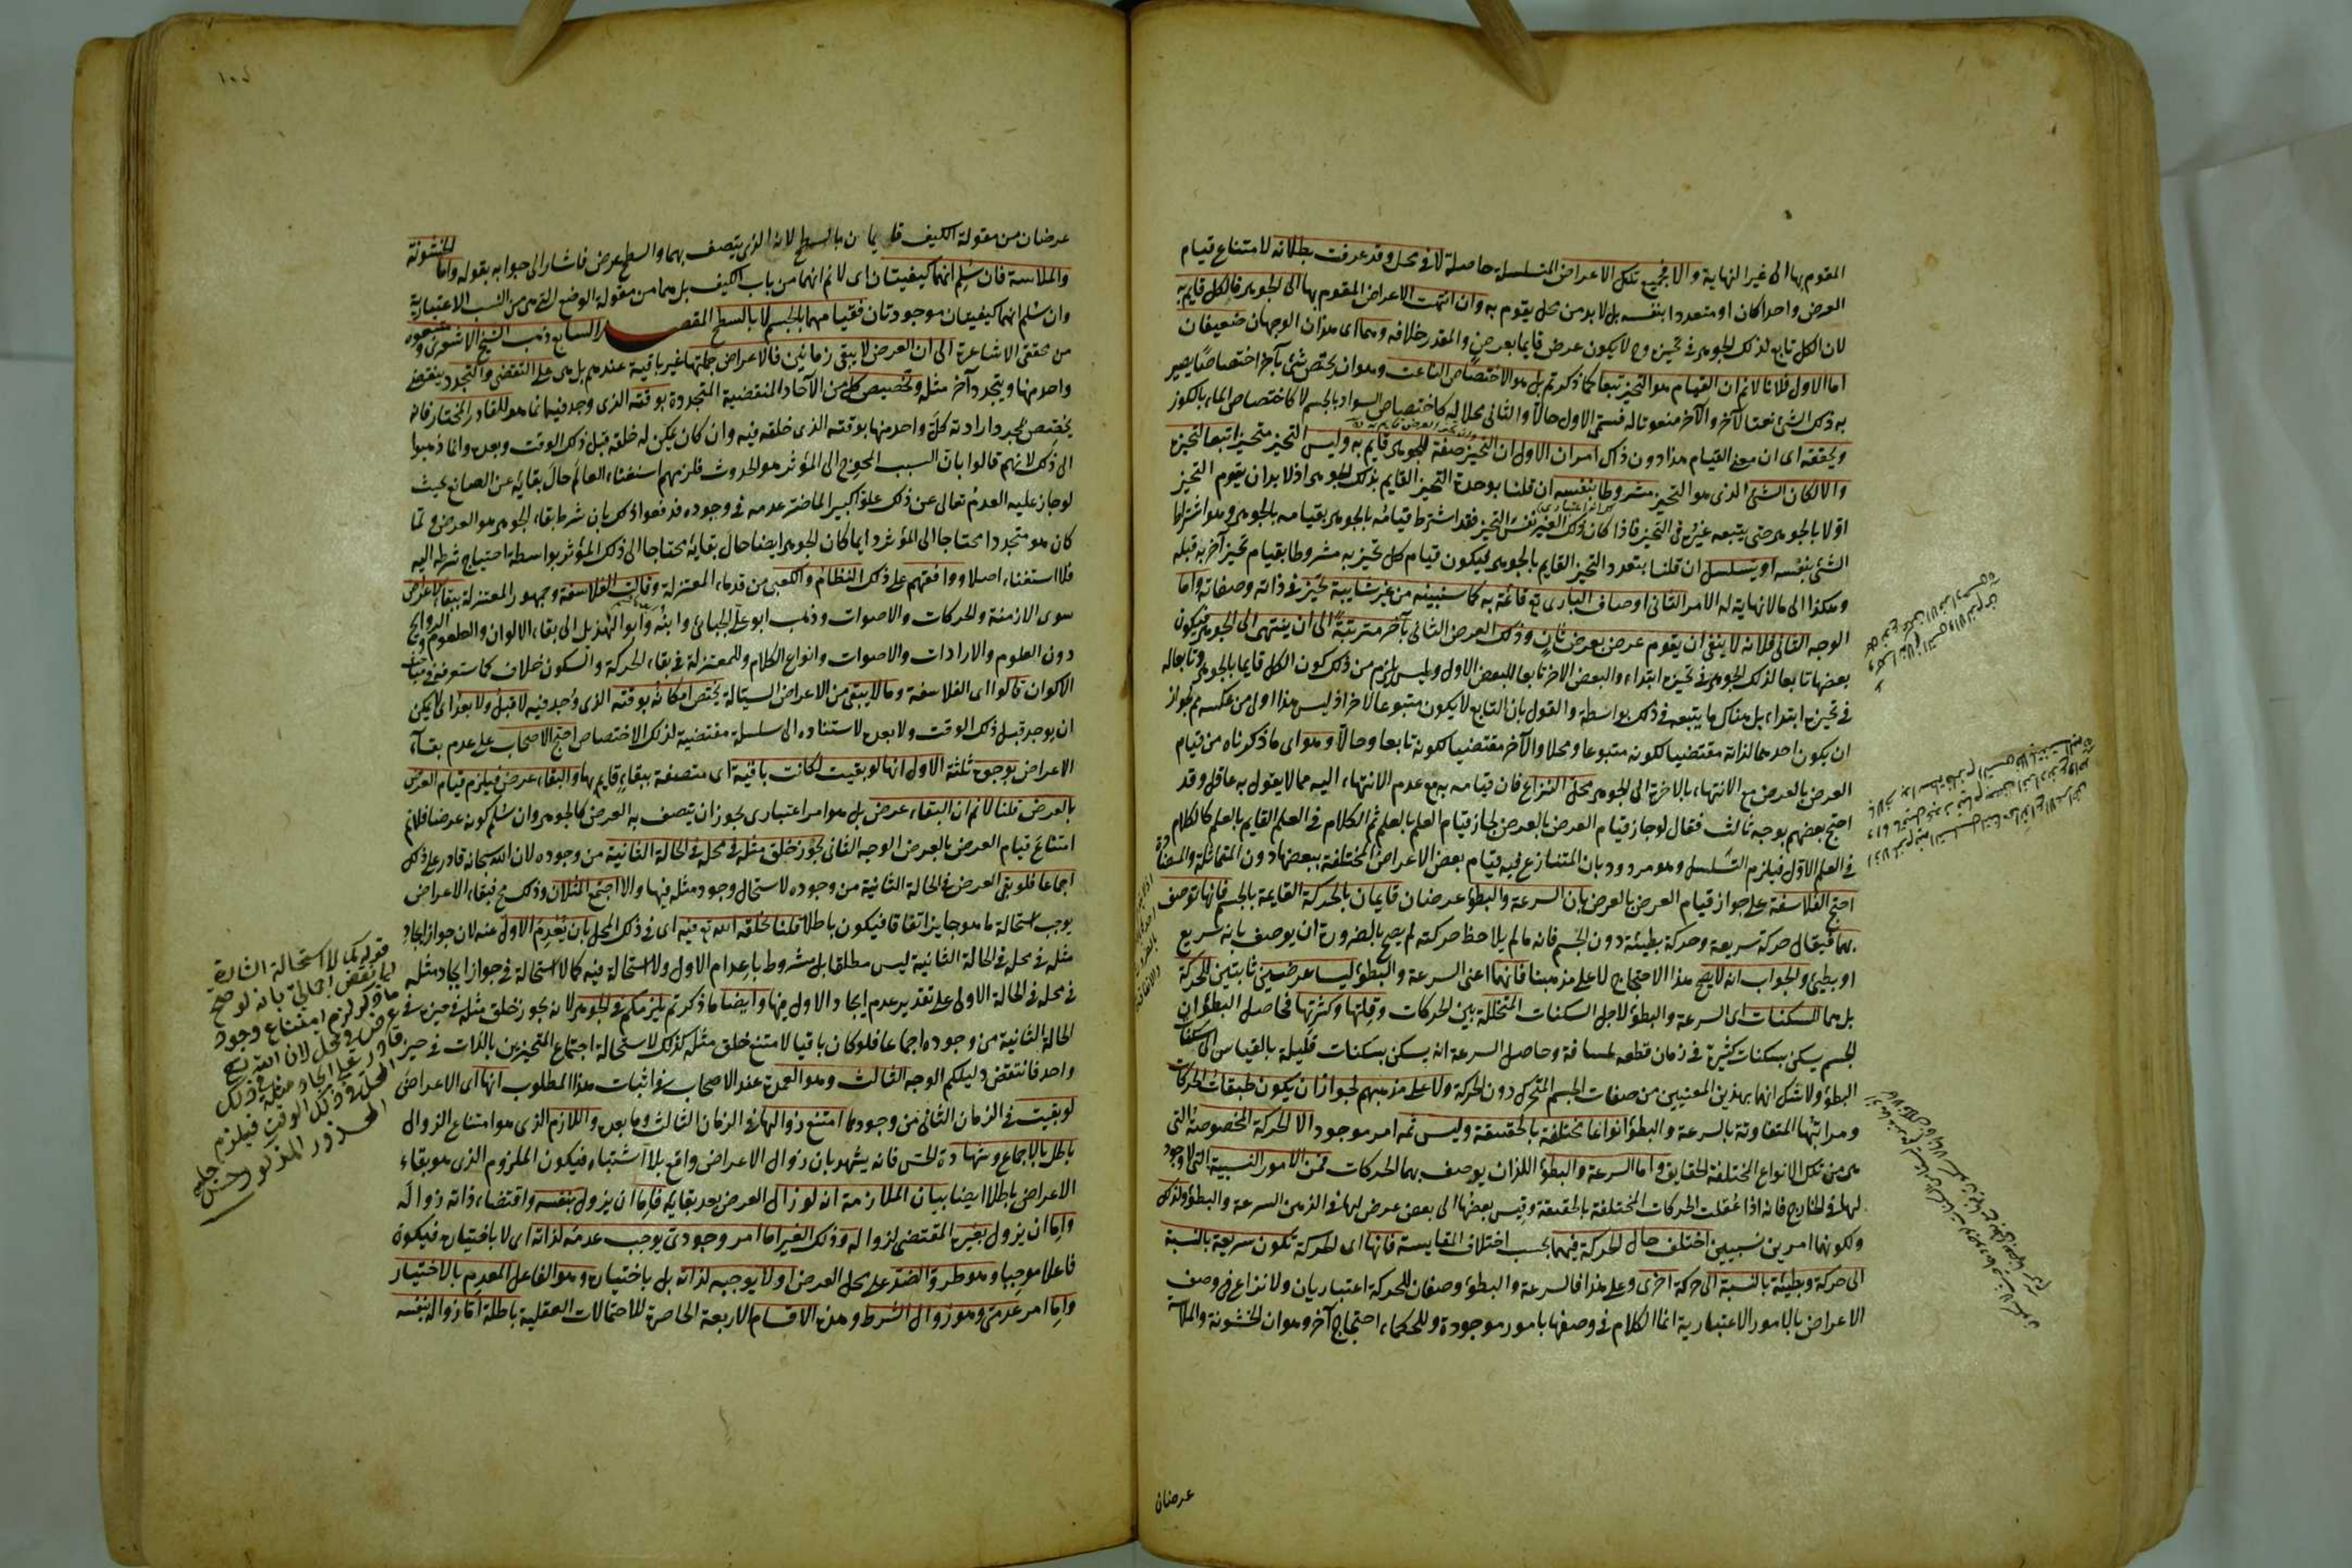 المقوم بها الى غير النهاية والا فجميع تلك الاعراض المتسلسلة حاصلة لا فى محل وقد عرفت بطلانه لامتناع قيام
العرض واحدا كان او متعددا بنفسه بل لا بد من محل يقوم به وان انتهت الاعراض المقوم بها الى الجوهر فالكل قايم به
لان الكل تابع لذلك الجوهر فى تحيزه وح لا يكون عرض قايما بعرض والمقدر خلافه وهما اى هذان الوجهان ضعيفان
اما الاول فلانا لا نم ان القيام هو التحيز تبعا كما ذكرتم بل هو الاختصاص الناعت وهو ان يختص شئ بآخر اختصاصا يصير
به ذلك الشئ نعتا لآخر والآخر منعوتا له فسمى الاول حالّا والثانى محلا له كاختصاص السواد بالجسم لا كاختصاص الماء بالكوز
ويحققه اى ان معنى القيام هذا دون ذاك امران الاول ان التحيز صفة للجوهر قايم به وليس التحيز متحيزا تبعا لتحيزه
والا لكان الشئ الذى هو التحيز مشروطا بنفسه ان قلنا بوحدة التحيز القايم بذلك الجوهر اذ لا بد ان يقوم التحيز
اولا بالجوهر حتى يتبعه غيره فى التحيز فاذا كان ذلك الغير نفس التحيز فقد اشترط قيامه بالجوهر بقيامه بالجوهر وهو اشتراط
الشئ بنفسه او يتسلسل ان قلنا بتعدد التحيز القايم بالجوهر فيكون قيام كل تحيز به مشروطا بقيام تحيز آخر به قبله
وهكذا الى ما لا نهاية له الامر الثانى اوصاف البارى تع قائمة به كما سنبينه من غير شايبة تحيز فى ذاته وصفاته واما
الوجه الثانى فلانه لا ينفى ان يقوم عرض بعرض ثان وذلك العرض الثانى بآخر مترتبة الى ان ينتهى الى الجوهر فيكون
بعضها تابعا لذلك الجوهر فى تحيزه ابتداء والبعض الآخر تابعا للبعض الاول وليس يلزم من ذلك كون الكل قايما بالجوهر وتابعا له
فى تحيزه ابتداء بل هناك ما يتبعه فى ذلك بواسطة والقول بان التابع لا يكون متبوعا لآخر اذ ليس هذا اولى من عكسه مم لجواز
ان يكون احدهما لذاته مقتضيا لكونه متبوعا ومحلا والآخر مقتضيا لكونه تابعا وحالّا وهو اى ما ذكرناه من قيام
العرض بالعرض مع الانتهاء بالاخرة الى الجوهر محل النزاع فان قيامه به مع عدم الانتهاء اليه مما لا يقول به عاقل وقد
احتج بعضهم بوجه ثالث فقال لو جاز قيام العرض بالعرض لجاز قيام العلم بالعلم ثم الكلام فى العلم القايم بالعلم كالكلام
فى العلم الاول فيلزم التسلسل وهو مردود بان المتنازع فيه قيام بعض الاعراض المختلفة ببعضها دون المتماثلة والمتضادة
احتج الفلاسفة على جواز قيام العرض بالعرض بان السرعة والبطؤ عرضان قايمان بالحركة القايمة بالجسم فانها توصف
بهما فيقال حركة سريعة وحركة بطيئة دون الجسم فانه ما لم يلاحظ حركته لم يصح بالضرورة ان يوصف بانه سريع
او بطئ والجواب انه لا يصح هذا الاحتجاج لا على مذهبنا فانهما اعنى السرعة والبطؤ ليسا عرضين ثابتين للحركة
بل هما للسكنات اى السرعة والبطؤ لاجل السكنات المتخللة بين الحركات وقلتها وكثرتها فحاصل البطؤ ان
الجسم يسكن بسكنات كثيرة فى زمان قطعه لمسافة وحاصل السرعة انه يسكن بسكنات قليلة بالقياس الى سكنات
البطؤ ولا شك انهما بهذين المعنيين من صفات الجسم المتحرك دون الحركة ولا على مذهبهم لجواز ان يكون طبقات الحركات
ومراتبها المتفاوتة بالسرعة والبطؤ انواعا مختلفة بالحقيقة وليس ثمه امر موجود الا الحركة المخصوصة التى
هى من تلك الانواع المختلفة الحقايق واما السرعة والبطؤ اللذان يوصف بهما الحركات فمن الامور النسبية التى لا وجود
لها فى الخارج فانه اذا عقلت الحركات المختلفة بالحقيقة وقيس بعضها الى بعض عرض لها فى الذهن السرعة والبطؤ ولذلك
ولكونهما امرين نسبيين اختلف حال الحركة فيهما بحسب اختلاف المقايسة فانها اى الحركة تكون سريعة بالنسبة
الى حركة وبطيئة بالنسبة الى حركة اخرى وعلى هذا فالسرعة والبطؤ وصفان للحركة اعتباريان ولا نزاع فى وصف
الاعراض بالامور الاعتبارية انما الكلام فى وصفها بامور موجودة وللحكماء احتجاج آخر وهو ان الخشونة والملاسة
عرضان
عرضان من مقولة الكيف قايمان بالسطح لانه الذى يتصف بهما والسطح عرض فاشار الى جوابه بقوله واما الخشونة
والملاسة فان سلم انهما كيفيتان اى لا نم انهما من باب الكيف بل هما من مقولة الوضع التى هى من النسب الاعتبارية
وان سلم انهما كيفيتان موجودتان فقيامهما بالجسم لا بالسطح المقصد السابع ذهب الشيخ الاشعرى ومتبعوه
من محققى الاشاعرة الى ان العرض لا يبقى زمانين فالاعراض جملتها غير باقية عندهم بل هى على التقضى والتجدد ينقضى
واحد منها ويتجدد آخر مثله وتخصيص كل من الآحاد المنقضية المتجددة بوقته الذى وجد فيه انما هو للقادر المختار فانه
يخصص بمجرد ارادته كل واحد منها بوقته الذى خلقه فيه وان كان يمكن له خلقه قبل ذلك الوقت وبعده وانما ذهبوا
الى ذلك لانهم قالوا بان السبب المحوج الى المؤثر هو الحدوث فلزمهم استغناء العالم حال بقائه عن الصانع بحيث
لو جاز عليه العدم تعالى عن ذلك علوا كبيرا لما ضر عدمه فى وجوده فدفعوا ذلك بان شرط بقاء الجوهر هو العرض ولما
كان هو متجددا محتاجا الى المؤثر دايما كان الجوهر ايضا حال بقائه محتاجا الى ذلك المؤثر بواسطة احتياج شرطه اليه
فلا استغناء اصلا ووافقهم على ذلك النظام والكعبى من قدماء المعتزلة وقالت الفلاسفة وجمهور المعتزلة ببقاء الاعراض
سوى الازمنة والحركات والاصوات وذهب ابو على الجبائى وابنه وابو الهذيل الى بقاء الالوان والطعوم والروايح
دون العلوم والارادات والاصوات وانواع الكلام وللمعتزلة فى بقاء الحركة والسكون خلاف كما ستعرفه فى مباحث
الاكوان قالوا اى الفلاسفة وما لا يبقى من الاعراض السيالة يختص امكانه بوقته الذى وجد فيه لا قبل ولا بعد اى لا يمكن
ان يوجد قبل ذلك الوقت ولا بعده لاستناده الى سلسلة مقتضية لذلك الاختصاص احتج الاصحاب على عدم بقاء
الاعراض بوجوه ثلثة الاول انها لو بقيت لكانت باقية اى متصفة ببقاء قايم بها والبقاء عرض فيلزم قيام العرض
بالعرض قلنا لا نم ان البقاء عرض بل هو امر اعتبارى يجوز ان يتصف به العرض كالجوهر وان سلم كونه عرضا فلا نم
امتناع قيام العرض بالعرض الوجه الثانى يجوز خلق مثله فى محله فى الحالة الثانية من وجوده لان الله سبحانه قادر على ذلك
اجماعا فلو بقى العرض فى الحالة الثانية من وجوده لاستحال وجود مثله فيها والا اجتمع المثلان وذلك مح فبقاء الاعراض
يوجب استحالة ما هو جايز اتفاقا فيكون باطلا قلنا يخلقه الله تع فيه اى فى ذلك المحل بان يعدم الاول عنه لان جواز ايجاد
مثله فى محله فى الحالة الثانية ليس مطلقا بل مشروط باعدام الاول ولا استحالة فيه كما لا استحالة فى جواز ايجاد مثله
فى محله فى الحالة الاولى على تقدير عدم ايجاد الاول فيها وايضا ما ذكرتم يلزمكم فى الجوهر لانه يجوز خلق مثله فى حيزه فى
الحالة الثانية من وجوده اجماعا فلو كان باقيا لامتنع خلق مثله كذلك لاستحالة اجتماع المتحيزين بالذات فى حيز
واحد فانتقض دليلكم الوجه الثالث وهو العمدة عند الاصحاب فى اثبات هذا المطلوب انها اى الاعراض
لو بقيت فى الزمان الثانى من وجودها امتنع زوالها فى الزمان الثالث وما بعده واللازم الذى هو امتناع الزوال
باطل بالاجماع وشهادة الحس فانه يشهد بان زوال الاعراض واقع بلا اشتباه فيكون الملزوم الذى هو بقاء
الاعراض باطلا ايضا بيان الملازمة انه لو زال العرض بعد بقايه فاما ان يزول بنفسه واقتضاء ذاته زواله
واما ان يزول بغيره المقتضى لزواله وذلك الغير اما امر وجودى يوجب عدمه لذاته اى لا باختياره فيكون
فاعلا موجبا وهو طرو الضد على محل العرض او لا يوجبه لذاته بل باختياره وهو الفاعل المعدم بالاختيار
واما امر عدمى وهو زوال الشرط وهذه الاقسام الاربعة الحاصرة للاحتمالات العقلية باطلة اما زواله بنفسه
قوله كما لا استحالة
ايجاد مثله فى ذلك
المحل فى ذلك الوقت فيلزم
المحذور المذكور حسن چلبى